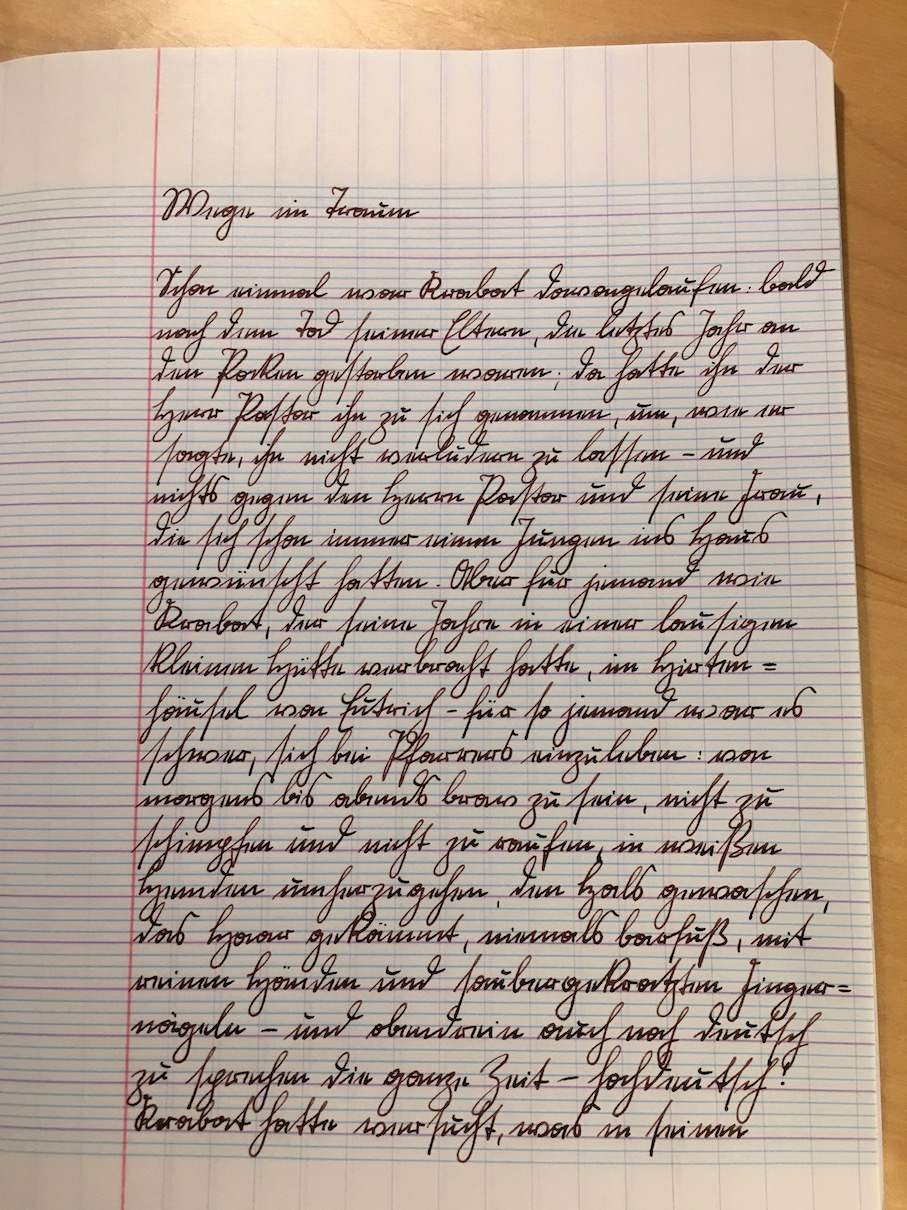 Wege im Traum
Schon einmal war Krabat davongelaufen: bald
nach dem Tod seiner Eltern, die letztes Jahr an
den Pocken gestorben waren; da hatte ihn der
Herr Pastor ihn zu sich genommen, um, wie er
sagte, ihn nicht verludern zu lassen – und
nichts gegen den Herrn Pastor und seine Frau,
die sich schon immer einen Jungen ins Haus
gewünscht hatten. Aber für jemand wie
Krabat, der seine Jahre in einer lausigen
kleinen Hütte verbracht hatte, im Hirten=
häusel von Eutrich – für so jemand war es
schwer, sich bei Pfarrers einzuleben: von
morgens bis abends brav zu sein, nicht zu
schimpfen und nicht zu raufen, in weißen
Hemden umherzugehen, den Hals gewaschen,
das Haar gekämmt, niemals barfuß, mit
reinen Händen und saubergekratzten Finger=
nägeln – und obendrein auch noch deutsch
zu sprechen die ganze Zeit – hochdeutsch!
Krabat hatte versucht, was in seinen